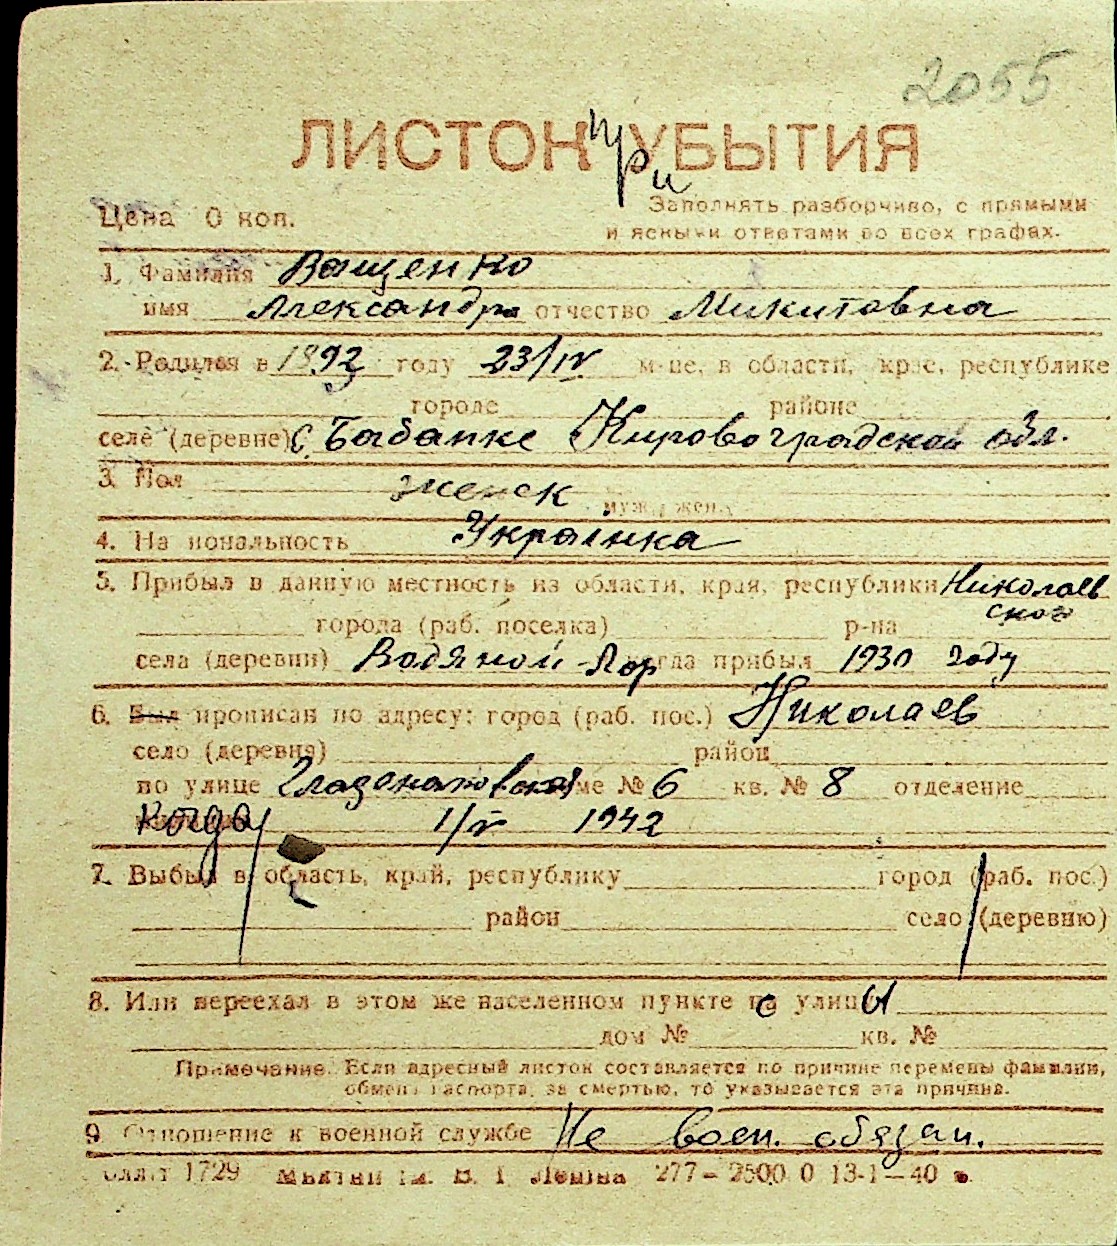 2055
ЛИСТОК при УБЫТИЯ
Цена 0 коп.
Заполнять разборчиво, с прямыми
и ясными ответами во всех графах.
1. Фамилия Ващенко
имя Александра отчество Микитовна
2. Родился в 1892 году 23/IV м-це, в области, крае, республике
городе районе
селе (деревне) с. Бабанке Кировоградской обл.
3. Пол женск
муж., жен.
4. Национальность Українка
5. Прибыл в данную местность из области, края, республики Николаев
ског
города (раб. поселка) р-на
села (деревни) Водяной-Лор когда прибыл 1930 году
6. Был прописан по адресу: город (раб. пос.) Николаев
село (деревня) район
по улице доме № 6 кв. № 8 отделение
когда 1/V 1942
7. Выбыл в область, край, республику город (раб. пос.)
район село (деревню)
8. Или переехал в этом же населенном пункте с улицы
дом № кв. №
Примечание. Если адресный листок составляется по причине перемены фамилии,
обмена паспорта, за смертью, то указывается эта причина.
9 Отношение к военной службе Не воен. обязан.
1729 им. В. І Леніна 277–2500 0 13-1–40